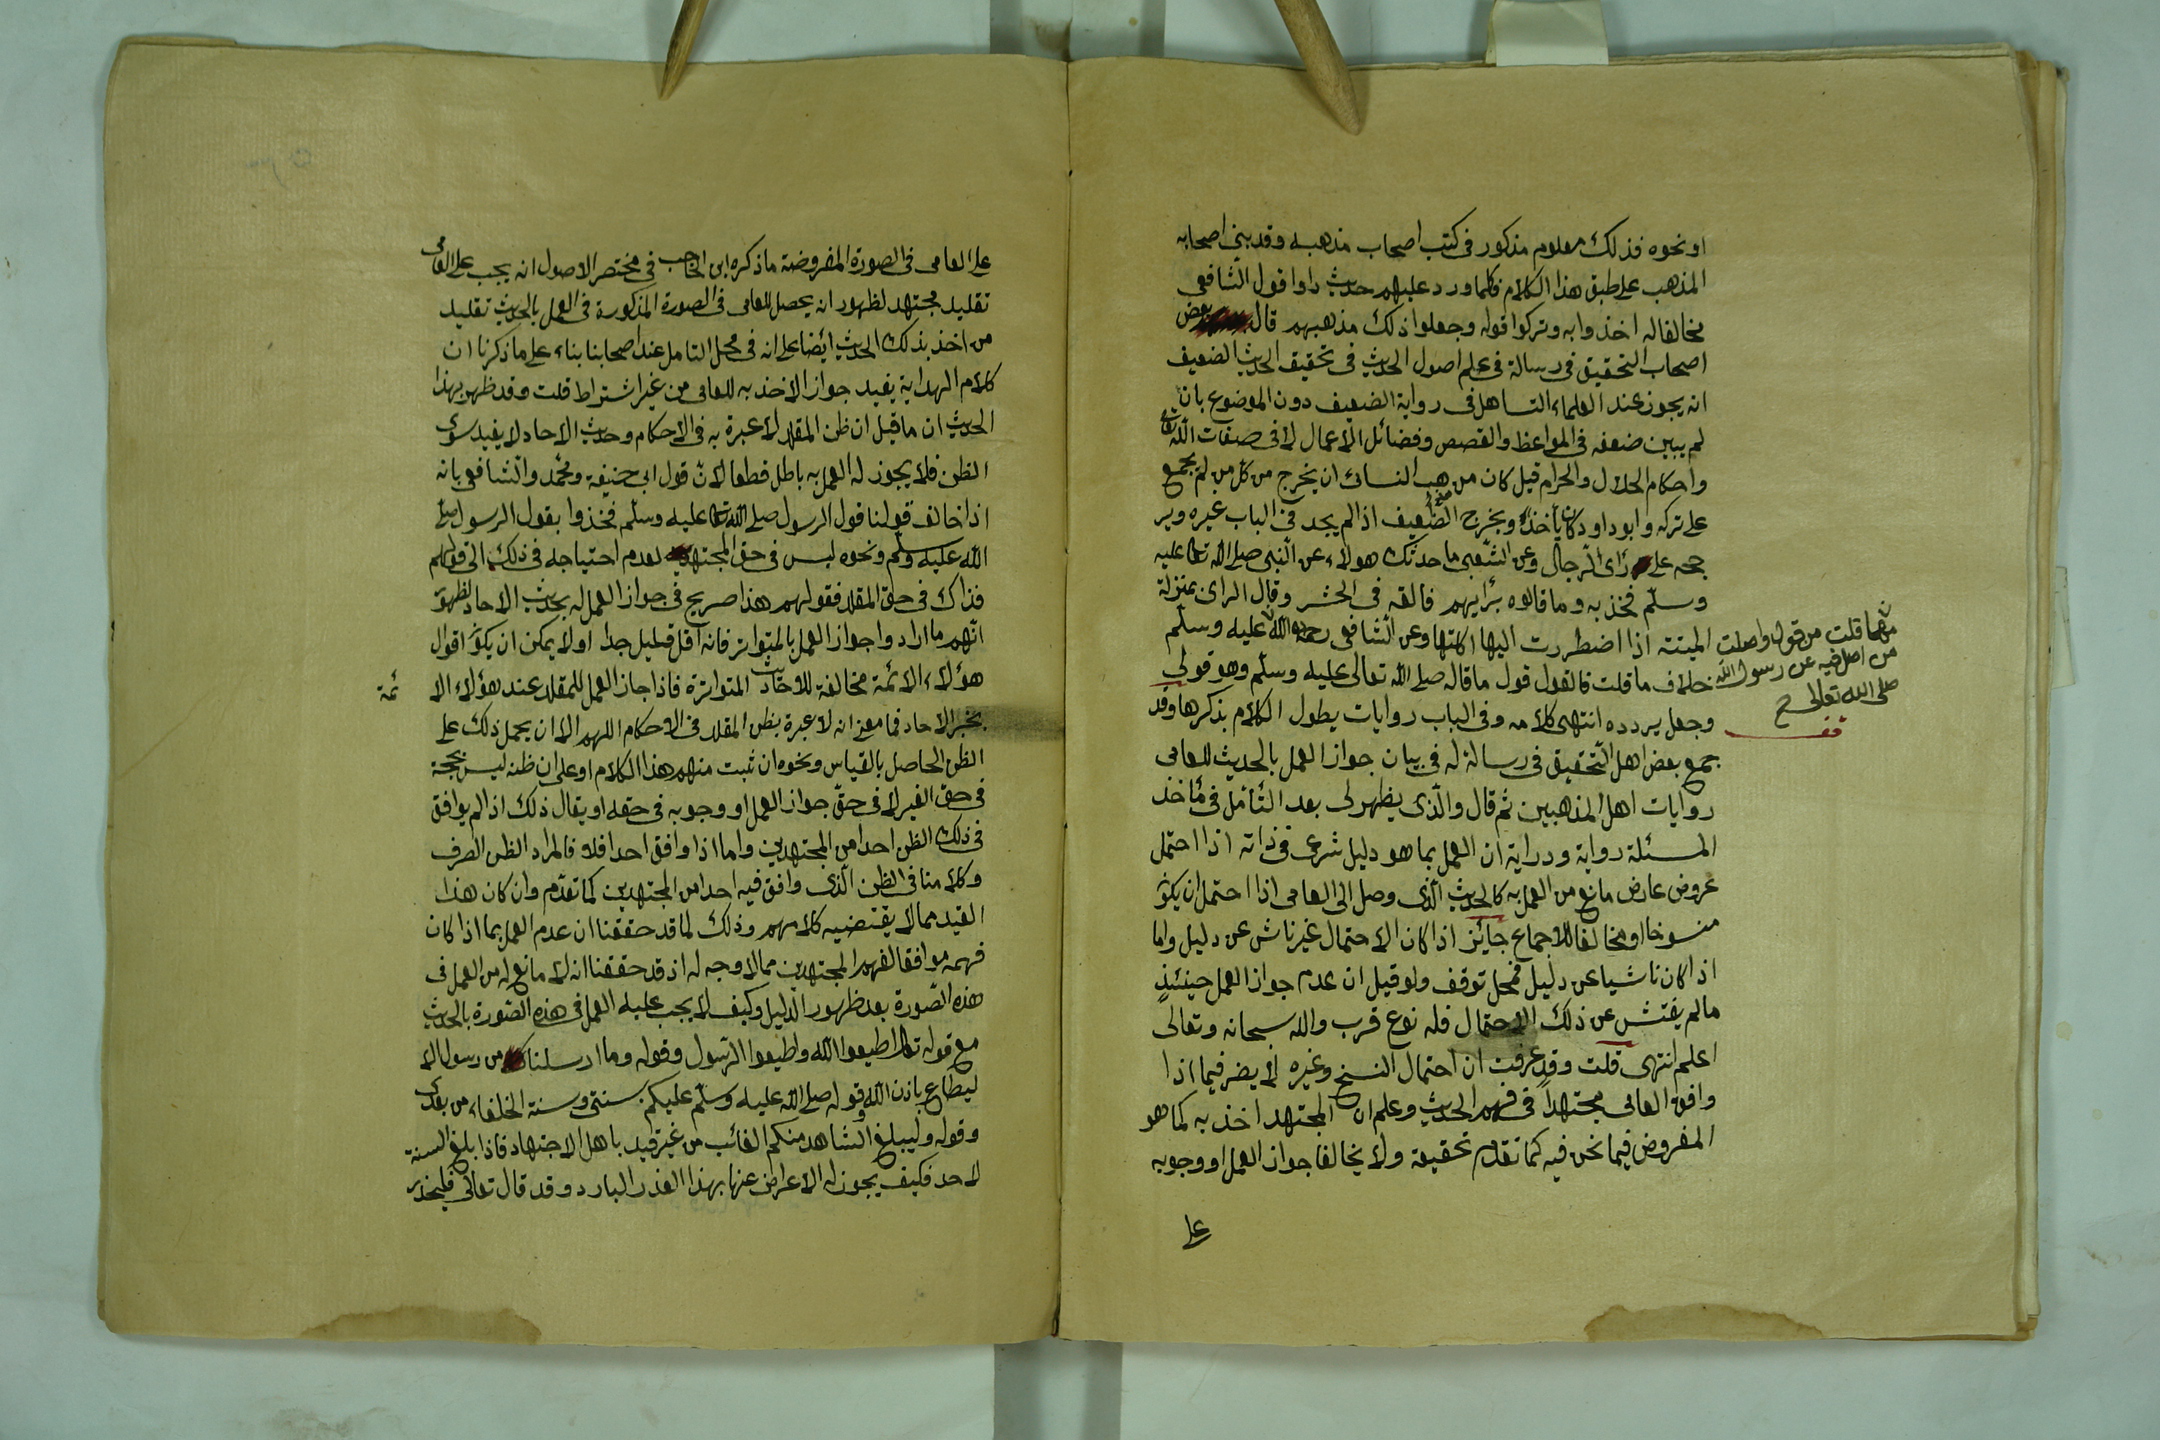 او نحوه فذلك معلوم مذكور فى كتب اصحاب مذهبه وقد بنى اصحابه
المذهب على طبق هذا الكلام فكلما ورد عليهم حديث راوا قول الشافعى
مخالفا له اخذوا به وتركوا قوله وجعلوا ذلك مذهبهم قال بعض
اصحاب التحقيق فى رسالة فى علم اصول الحديث فى تحقيق الحديث الضعيف
انه يجوز عند العلماء التساهل فى رواية الضعيف دون الموضوع بان
لم يبين ضعفه فى المواعظ والقصص وفضائل الاعمال لا فى صفات الله تعالى
واحكام الحلال والحرام قيل كان من مذهب النسائى ان يخرج من كل من لم يجمع
على تركه وابو داود كان يأخذ مأخذه ويخرج الضعيف اذا لم يجد فى الباب غيره وير
جحه على رأى الرجال وعن الشعبى ما حدثك هولاء عن النبى صلى الله تعالى عليه
وسلم فخذ به وما قالوه برأيهم فالقه فى الحش وقال الراى بمنزلة
الميتة اذا اضطررت اليها اكلتها وعن الشافعى رحمه الله عليه وسلم
مهما قلت من قول واصلت
من اصل فيه عن رسول الله
صلى الله تعالى صح
خلاف ما قلت فالقول قول ما قاله صلى الله تعالى عليه وسلم وهو قولى
وجعل يردده انتهى كلامه وفى الباب روايات يطول الكلام بذكرها وقد
قف
جمع بعض اهل التحقيق فى رسالة له فى بيان جواز العمل بالحديث للعامى
روايات اهل المذهبين ثم قال والذى يظهر لى بعد التأمل فى مأخذ
المسئلة رواية ودراية ان العمل بما هو دليل شرعى فى ذاته اذا احتمل
عروض عارض مانع من العمل به كالحديث الذى وصل الى العامى اذا احتمل ان يكون
منسوخا او مخالفا للاجماع جايز اذا كان الاحتمال غير ناش عن دليل واما
اذا كان ناشيا عن دليل فمحل توقف ولو قيل ان عدم جواز العمل حينئذ
ما لم يفتش عن ذلك الاحتمال فله نوع قرب والله سبحانه وتعالى
اعلم انتهى قلت وقد عرفت ان احتمال النسخ وغيره لا يضر فيما اذا
وافق العامى مجتهدا فى فهم الحديث وعلم ان المجتهد اخذ به كما هو
المفروض فيما نحن فيه كما تقدم تحقيقه ولا يخالفا جواز العمل او وجوبه
على
على العامى فى الصورة المفروضة ما ذكره ابن الحاجب فى مختصر الاصول انه يجب على العامى
تقليد مجتهد لظهور ان يحصل للعامى فى الصورة المذكورة فى العمل بالحديث تقليد
من اخذ بذلك الحديث ايضا على انه فى محل التامل عند اصحابنا بناء على ما ذكرنا ان
كلام الهداية يفيد جواز الاخذ به للعامى من غير اشتراط قلت وقد ظهر بهذا
الحديث ان ما قيل ان ظن المقلد لا عبرة به فى الاحكام وحديث الاحاد لا يفيد سوى
الظن فلا يجوز له العمل به باطل قطعا لان قول ابى حنيفة ومحمد والشافعى بانه
اذا خالف قولنا قول الرسول صلى الله تعالى عليه وسلم فخذوا بقول الرسول صلى
الله عليه وسلم ونحوه ليس فى حق المجتهد لعدم احتياجه فى ذلك الى قولهم
فذاك فى حق المقلد فقولهم هذا صريح فى جواز العمل له بحديث الاحاد لظهور
انهم ما ارادوا جواز العمل بالمتواتر فانه اقل قليل جدا او لا يمكن ان يكون اقوال
هؤلاء الائمة مخالفة للاحاديث المتواترة فاذا جاز العمل للمقلد عند هؤلاء الا
ئمة
بخبر الاحاد فما معنى انه لا عبرة بظن المقلد فى الاحكام اللهم الا ان يحمل ذلك على
الظن الحاصل بالقياس ونحوه ان ثبت منهم هذا الكلام او على ان ظنه ليس بحجة
فى حق الغير لا فى حق جواز العمل او وجوبه فى حقه او يقال ذلك اذا لم يوافق
فى ذلك الظن احدا من المجتهدين واما اذا وافق احدا فلا فالمراد الظن الصرف
وكلامنا فى الظن الذى وافق فيه احدا من المجتهدين كما تقدم وان كان هذا
القيد مما لا يقتضيه كلامهم وذلك لما قد حققنا ان عدم العمل بما اذا كان
فهمه موافقا لفهم المجتهدين مما لا وجه له اذ قد حققنا انه لا مانع له من العمل فى
هذه الصورة بعد ظهور الدليل وكيف لا يجب عليه العمل فى هذه الصورة بالحديث
مع قوله تعالى اطيعوا الله واطيعوا الرسول وقوله وما ارسلنا من رسول الا
ليطاع باذن الله وقوله صلى الله عليه وسلم عليكم بسنتى وسنة الخلفاء من بعدى
وقوله وليبلغ الشاهد منكم الغائب من غير قيد باهل الاجتهاد فاذا بلغ السنة
لاحد فكيف يجوز له الاعراض عنها بهذا العذر البارد وقد قال تعالى فليحذر